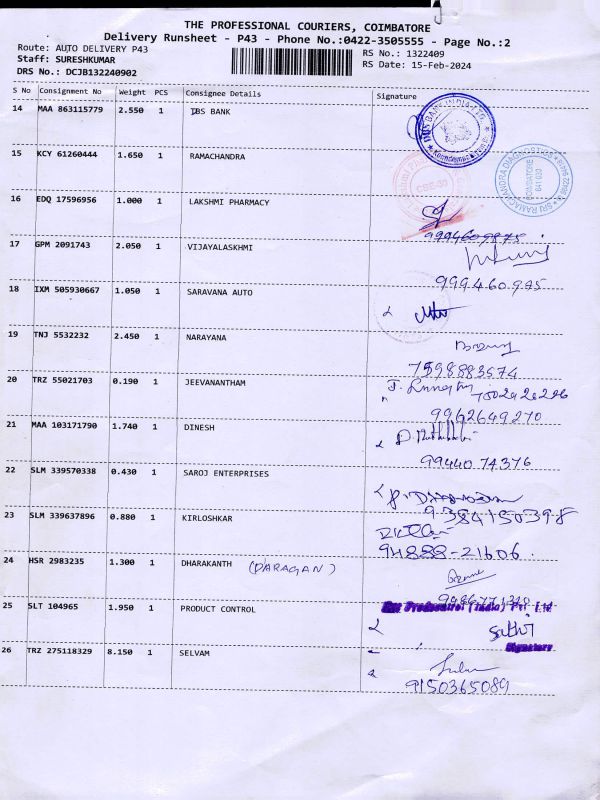 THE PROFESSIONAL COURIERS, COIMBATORE
Delivery Runsheet - P43 - Phone No.:0422-3505555 - Page No.:2
Route: AUTO DELIVERY P43
RS No.: 1322409
Staff: SURESHKUMAR
RS Date: 15-Feb-2024
DRS No.: DCJB132240902
S No Consignment No Weight PCS Consignee Details Signature
14 MAA 863115779 2.550 1 IBS BANK
15 KCY 61260444 1.650 1 RAMACHANDRA
16 EDQ 17596956 1.000 1 LAKSHMI PHARMACY
17 GPM 2091743 2.050 1 VIJAYALASKHMI
999460995
18 IXM 505930667 1.050 1 SARAVANA AUTO
19 TNJ 5532232 2.450 1 NARAYANA
7598883574
20 TRZ 55021703 0.190 1 JEEVANANTHAM
9962649270
21 MAA 103171790 1.740 1 DINESH
9944074376
22 SLM 339570338 0.430 1 SAROJ ENTERPRISES
9384150398
23 SLM 339637896 0.880 1 KIRLOSHKAR
94888-21606.
24 HSR 2983235 1.300 1 DHARAKANTH (DARAGAN)
25 SLT 104965 1.950 1 PRODUCT CONTROL
(India) Pvt Ltd
Sathi
Signatory
26 TRZ 275118329 8.150 1 SELVAM
9150365089